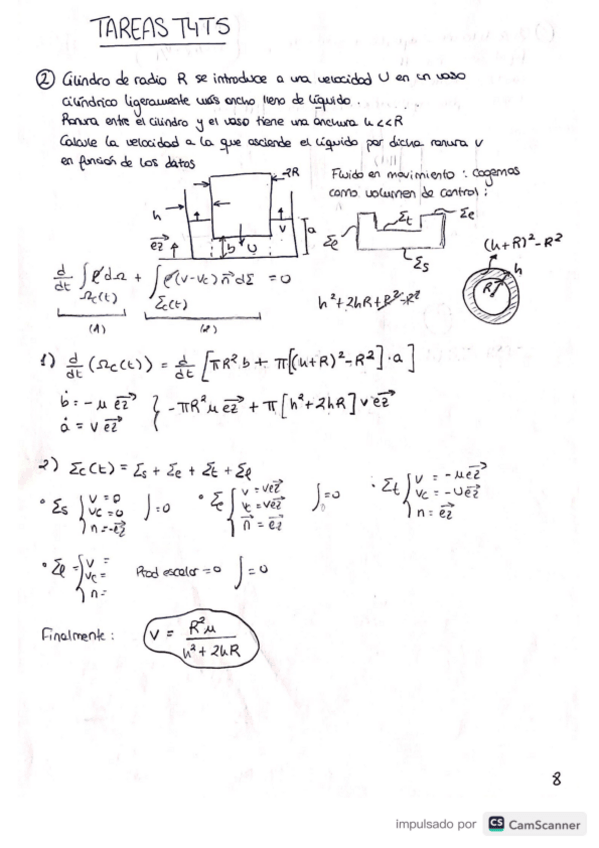 TAREAS T4T5
② Cilindro de radio R se introduce a una velocidad U en un vaso
cilíndrico ligeramente más ancho lleno de líquido.
Ranura entre el cilindro y el vaso tiene una anchura h<<R
Calcule la velocidad a la que asciende el líquido por dicha ranura v
en función de los datos
2R
Fluido en movimiento : cogemos
como volumen de control :
h
v
a
b
U
ez
Σe
Σt
Σe
Σs
(h+R)²-R²
h
R
d/dt ∫ ρ dΩ + ∫ ρ(v-vc) n dΣ = 0
Ωc(t) Σc(t)
(1) (2)
h²+2hR+R²-R²
1) d/dt (Ωc(t)) = d/dt [πR² b + π[(h+R)²-R²]·a]
ḃ = -u ez { -πR² u ez + π[h²+2hR] v ez
ȧ = v ez
2) Σc(t) = Σs + Σe + Σt + Σl
• Σs { v = 0 vc = 0 n = -ez ∫ = 0
• Σe { v = vez vc = vez n = ez ∫ = 0
• Σt { v = -uez vc = -Uez n = ez
• Σl = { v = vc = n = Prod escalar = 0 ∫ = 0
Finalmente : v = R²u / h² + 2hR
8
impulsado por CS CamScanner